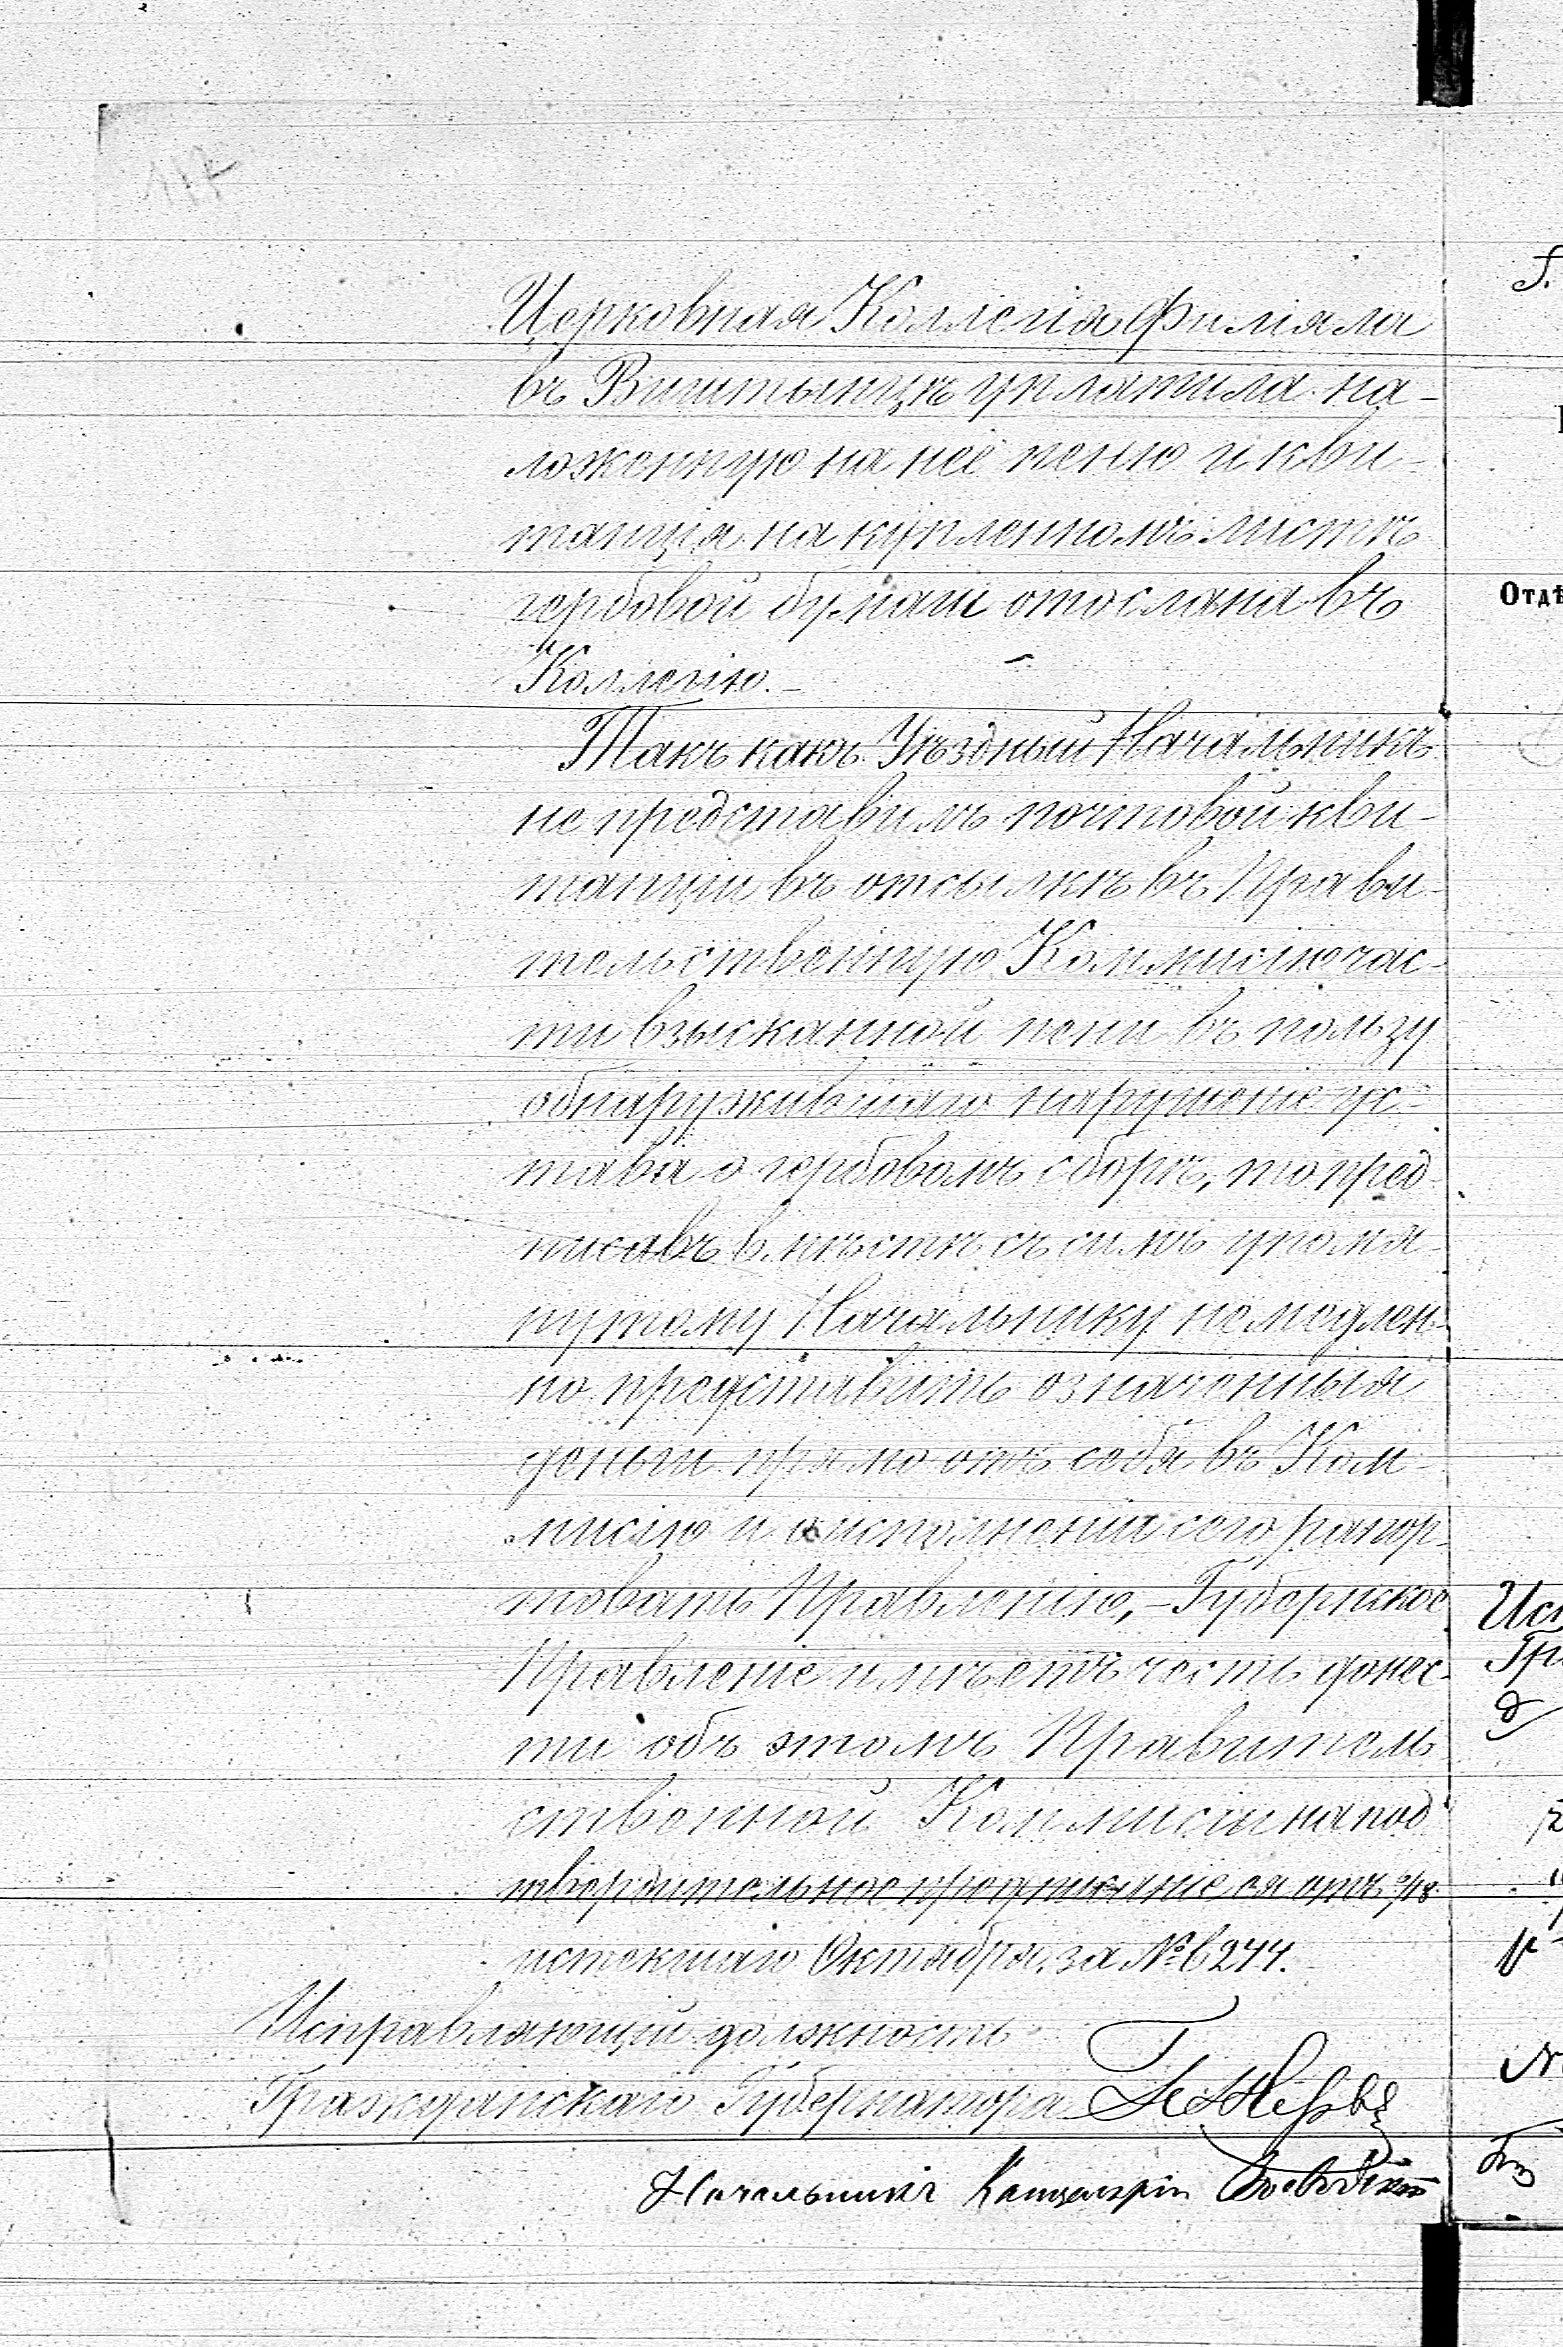 117
Церковная Коллегія Филіяла
въ Виштынцѣ уплатила на-
ложенную на неё пеню и кви-
танція на купленномъ листѣ
гербовой бумаги отослана въ
Коллегію.-
Такъ какъ Уѣздный Начальникъ
не представилъ почтовой кви-
танціи въ отсылкѣ въ Прави-
тельственную Коммисію час-
ти взысканной пени въ пользу
обнаружившаго нарушеніе ус-
тава о гербовомъ сборѣ, то пред-
писавъ вмѣстѣ съ симъ упомя-
нутому Начальнику немедлен-
но представить означенныя
деньги прямо отъ себя въ Ком-
мисію и о исполненіи сего рапор-
товать Правленію,- Губернское
Правленіе имѣетъ честь донес-
ти объ этомъ Правитель-
ственной Коммисіи на под-
твердительное предписаніе ея отъ 6/18
истекшаго Октября, за № 6244.
Исправляющій должность
Гражданскаго Губернатора
Начальникъ Канцеляріи
Отдѣ